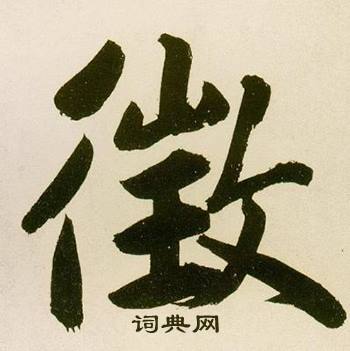 徵
词典网